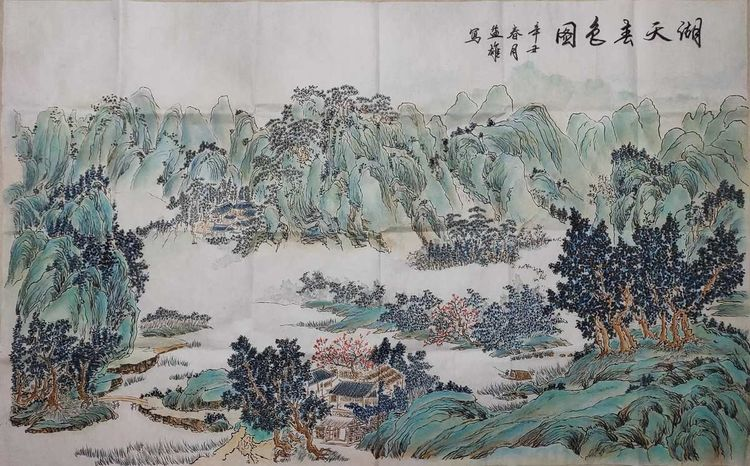 湖天春色图
辛丑
春月
益雄
写